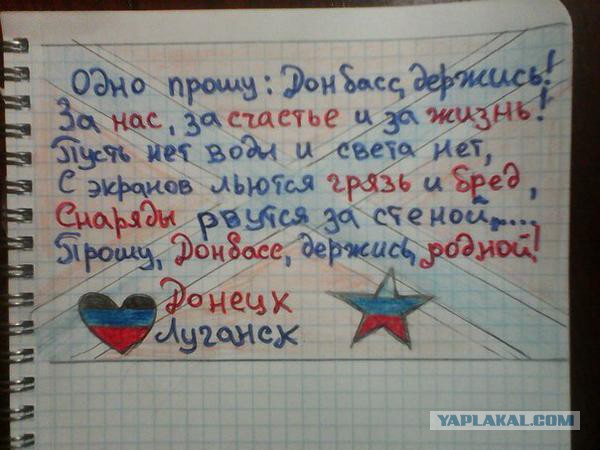 Одно прошу: Донбасс, держись!
За нас, за счастье и за жизнь!
Пусть нет воды и света нет,
С экранов льются грязь и бред,
Снаряды рвутся за стеной.....
Прошу, Донбасс, держись, родной!
Донецк
Луганск
YAPLAKAL.COM